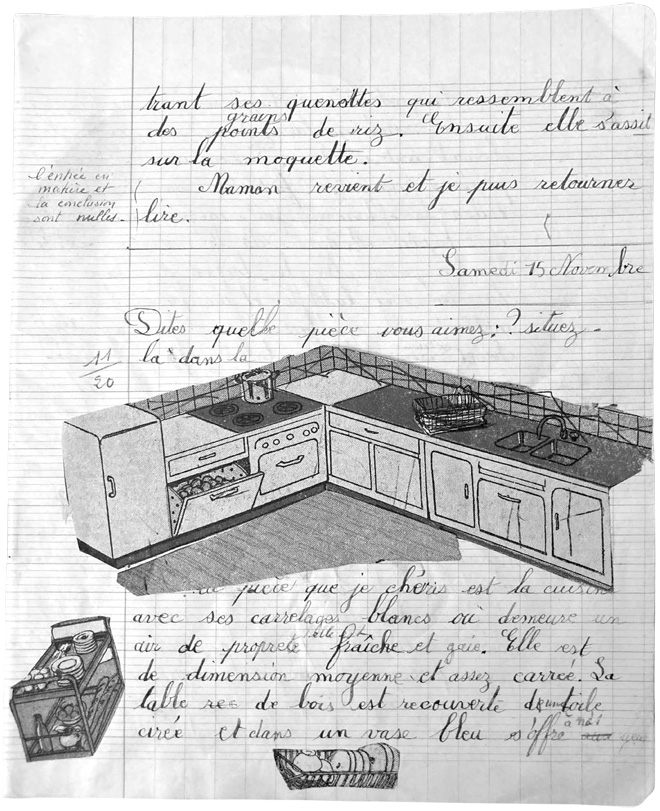 trant ses quenottes qui ressemblent à
grains
des points de riz. Ensuite elle s'assit
sur la moquette.
l'entrée en
matière et
la conclusion
sont nulles.
Maman revient et je puis retourner
lire.
Samedi 15 Novembre
Dites quelle pièce vous aimez: ? situez-
11
20
la dans la
pièce que je chéris est la cuisine
avec ses carrelages blancs où demeure un
air de propreté fraîche et gaie. Elle est
de dimension moyenne et assez carrée. La
table de bois est recouverte d'une toile
cirée et dans un vase bleu s'offre à nos